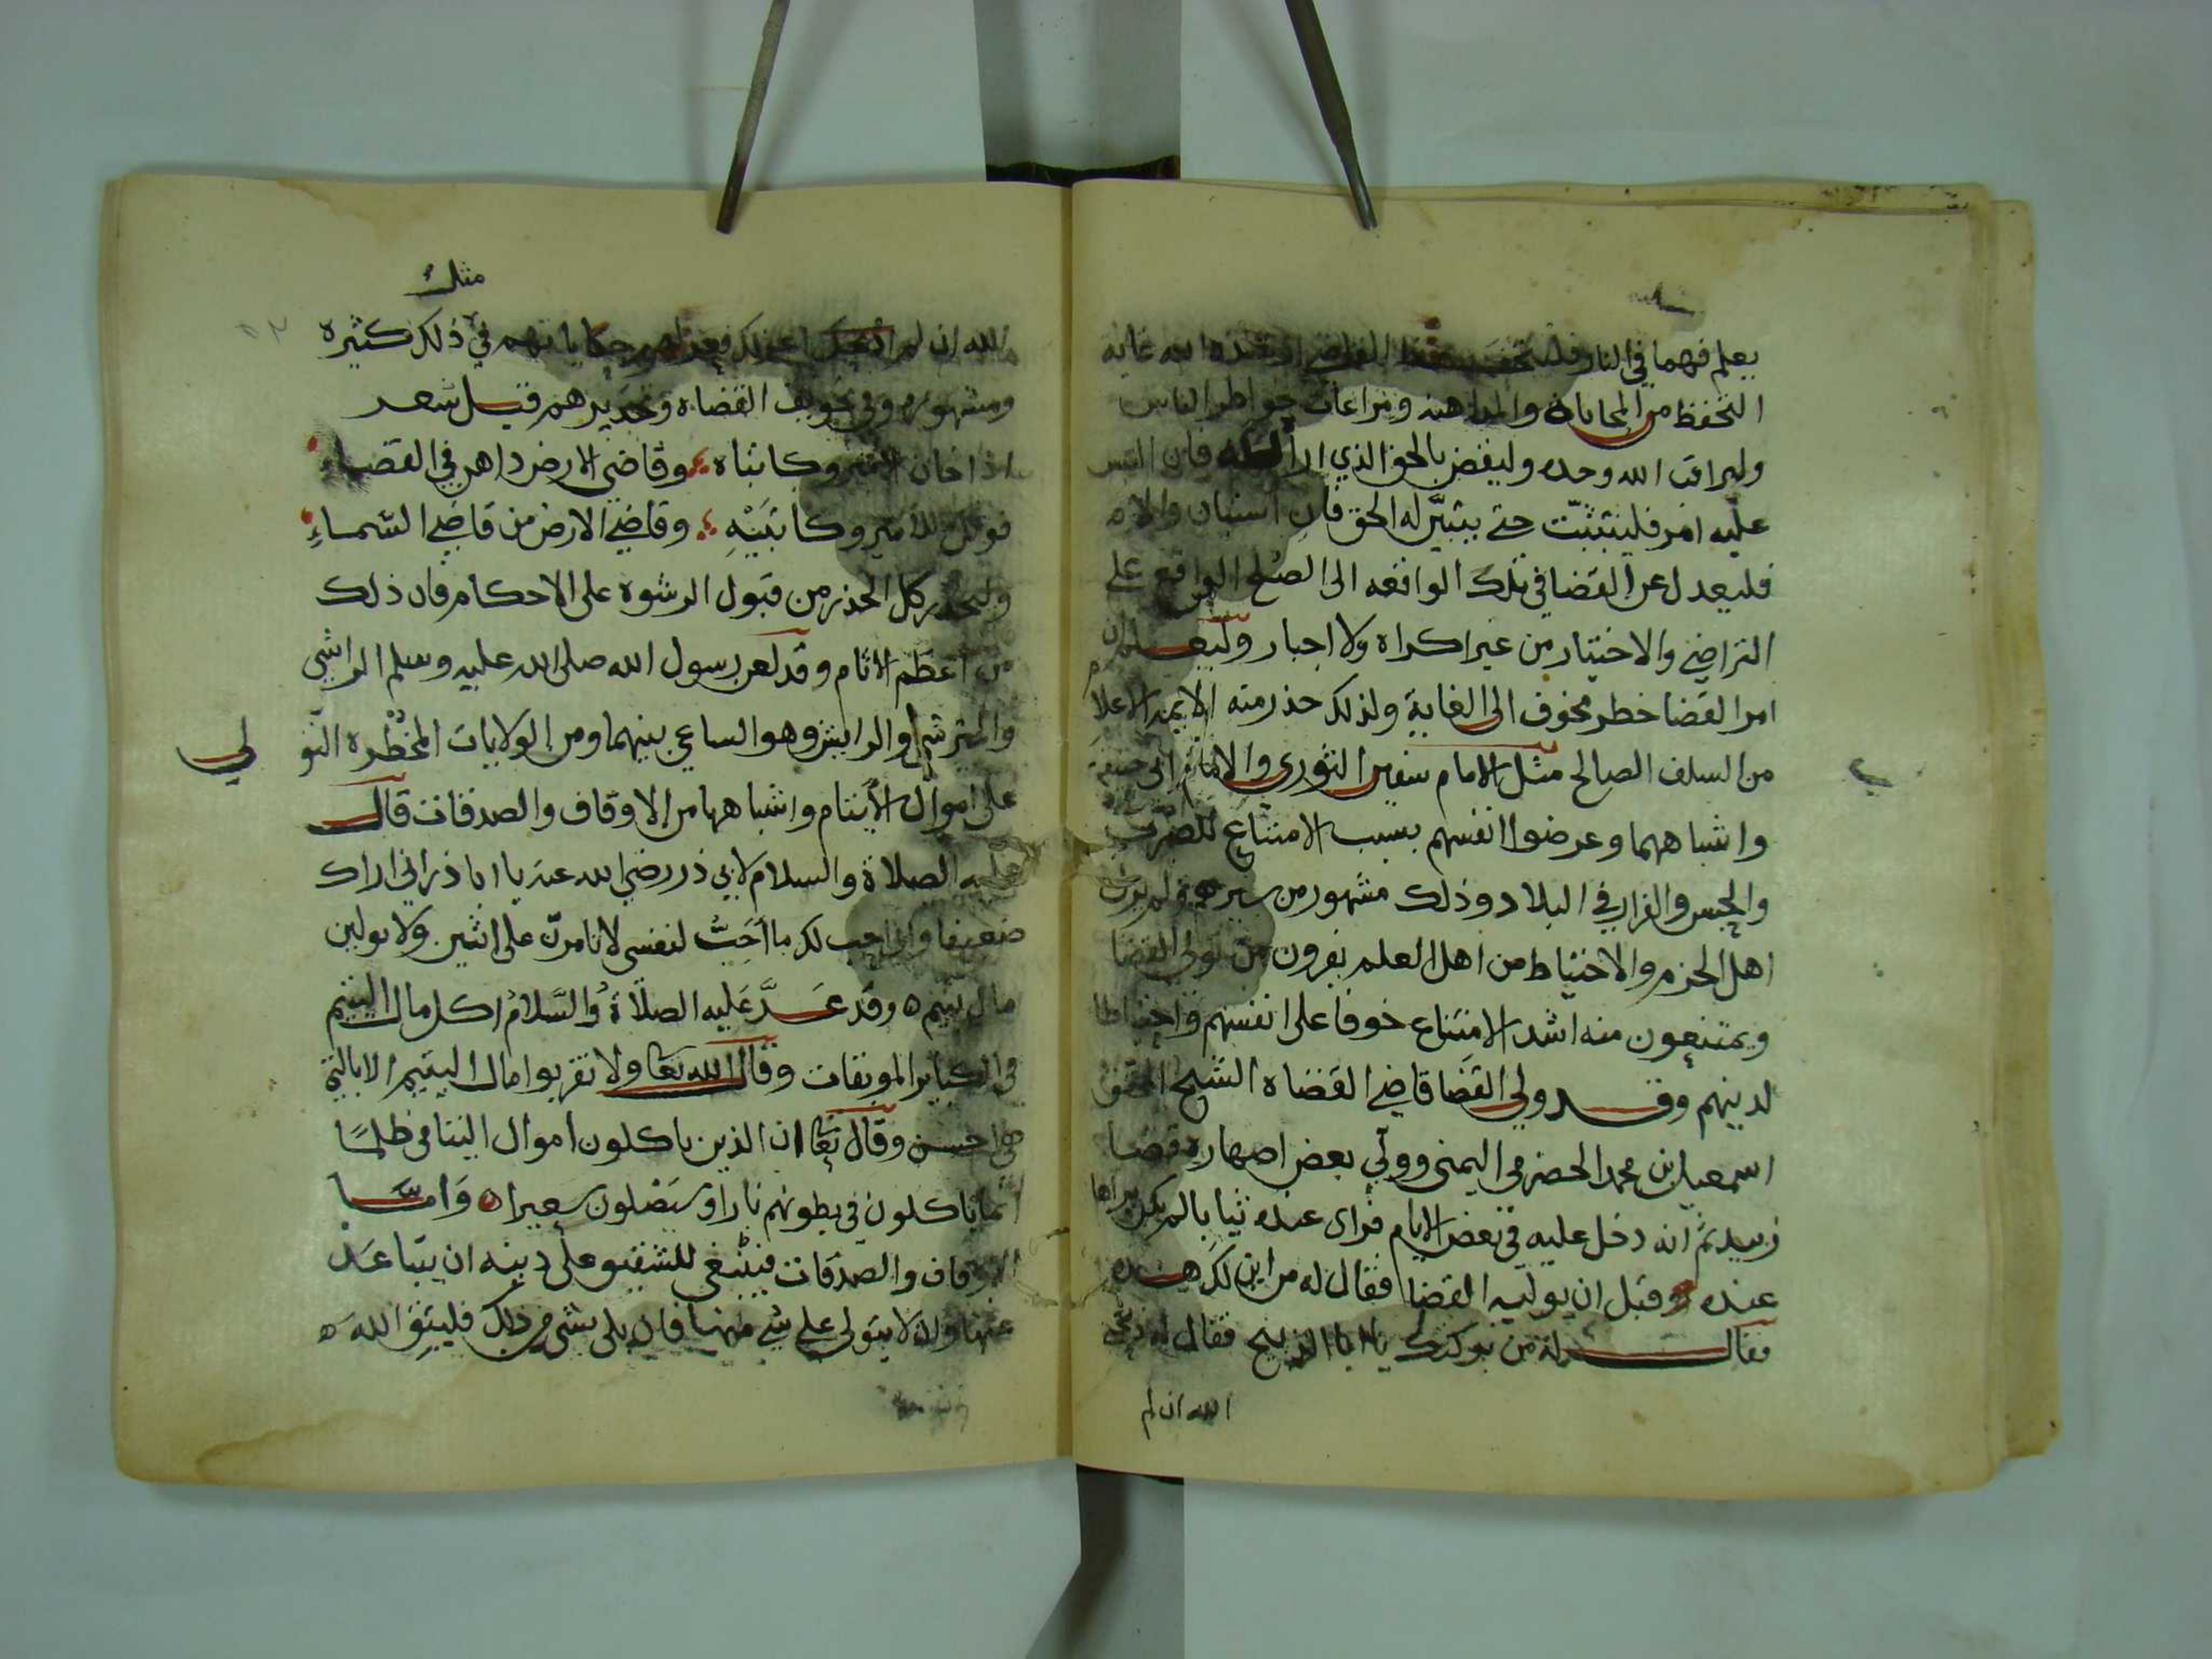 يعلم فهما في النار فليتحفظ القاضي ارشده الله غاية
التحفظ من المحاباة والمداهنه ومراعات خواطر الناس
وليراقب الله وحده وليقض بالحق الذي اراه الله فان التبس
عليه امر فليتثبت حتى يتبيّن له الحق فان استبان والا
فليعدل عن القضا في تلك الواقعه الى الصلح الواقع على
التراضي والاختيار من غير اكراه ولا اجبار وليعلم ان
امر القضا خطر مخوف الى الغاية ولذلك حذر منه الايمة الاعلام
من السلف الصالح مثل الامام سفين الثوري والامام ابي حنيفة
واشباههما وعرضوا انفسهم بسبب الامتناع للضرب
والحبس والفرار في البلاد وذلك مشهور من سيرهم ولم يزل
اهل الحزم والاحتياط من اهل العلم يفرون من تولي القضا
ويمتنعون منه اشد الامتناع خوفا على انفسهم واحتياطا
لدينهم وقد ولي القضا قاضي القضاه الشيخ المحقق
اسمعيل بن محمد الحضرمي اليمني وولي بعض اصهاره قضا
زبيد ثم انه دخل عليه في بعض الايام فراى عنده ثيابا لم يكن يراها
عنده قبل ان يوليه القضا فقال له من اين لك هذه
فقال له من بركتك يا ابا الذبيح فقال له ذبحني
الله ان لم
مثلث
الله ان لم اعزلك فعزله حكاياتهم في ذلك كثيره
ومشهوره وفي تخويف القضاه وتحذيرهم قيل شعر
اذا خان الامير وكاتباه وقاضي الارض داهن في القضاء
فويل للامير وكاتبيه وقاضي الارض من قاضي السّماءِ
وليحذر كل الحذر من قبول الرشوة على الاحكام فان ذلك
من اعظم الاثام وقد لعن رسول الله صلى الله عليه وسلم الراشي
والمرتشي والرايش وهو الساعي بينهما ومن الولايات المخطرة التو
لي
على اموال الايتام واشباهها من الاوقاف والصدقات قال
عليه الصلاة والسلام لابي ذر رضي الله عنه يا ابا ذر اني اراك
ضعيفا واني احب لك ما احبّ لنفسي لا تامرنّ على اثنين ولا تولين
مال يتيم ه وقد عدَّ عليه الصلاة والسَّلام اكل مال اليتيم
في الكباير الموبقات وقال الله تعا ولا تقربوا مال اليتيم الا بالتي
هي احسن وقال تعا ان الذين ياكلون اموال اليتامى ظلمًا
انما ياكلون في بطونهم نارا وسيصلون سعيرا ه وَامّا
الاوقاف والصدقات فينبغي للشفيق على دينه ان يتباعد
عنها وان لا يتولى على شي منها فان بلي بشي من ذلك فليتق الله